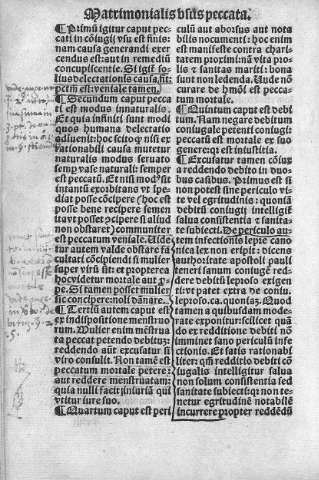 Matrimonialis vsus peccata.
¶ Primũ igitur caput pec
cati in cõiugij vsu est finis:
nam causa generandi exer
cendus est: aut in remediũ
concupiscentie. Si igitur so
lius delectationis causa, fit,
pctm est: veniale tamen.
¶ Secundum caput pecca
ti est modus innaturalis.
Et quia infiniti sunt modi
quos humana delectatio
adiuenit: hoc scito qp nisi ex
rationabili causa mutetur
naturalis modus seruato
semp vase naturali semper
est peccatũ. Et nisi modus sit
intantũ exorbitans vt ipe-
diat posse cõcipere (hoc est
posse bene recipere semen
ita vt posset cipere si aliud
non obstaret) communiter
est peccatum veniale. Uide
tur autem valde obstare fa
cultati cõcipiendi si mulier
super virũ sit: et propterea
hoc videtur mortale aut p-
pe. Si tamen posset mulier
sic concipere: noli dãnare.
¶ Tertiũ autem caput est
ex indispositione menstruo
rum. Mulier enim mẽstrua
ta peccat petendo debituz:
reddendo aũt excusatur si
viro consulit. Non tamẽ est
peccatum mortale petere:
aut reddere menstruatam:
quia nulli facit iniuriã qui
vtitur iure suo.
¶ Quartum caput est peri
culũ aut abortus aut nota
bilis nocumenti: hoc enim
est manifeste contra chari
tatem proximi nã vita pro
lis & sanitas mariti: bona
sunt non ledenda. Uñde nõ
curare de hmõi est pecca-
tum mortale.
¶ Quintum caput est debi
tum. Nam negare debitum
coniugale petenti coniugi:
peccatũ est mortale ex suo
genere: qz est iniustitia.
¶ Excusatur tamen cõiux
a reddendo debito in duo
bus casibus. Primus est si
non potest sine periculo vi
te vel egritudinis: quoniã
debitũ coniugij intelligit
salua consistentia & sanita-
te subiecti. De periculo au
tem infectionis lepre cano
nica lex non eripit: dicens
authoritate apostoli pauli
teneri sanum coniugẽ red-
dere debitũ leproso exigen
ti: vt patet extra de coniu.
leproso. ca. quoniaz. Quod
tamen a quibusdam mode
rate exponitur: scilicet quã
do ex redditione debiti nõ
imminet sano periculũ infe
ctionis. Et satis rationabi
liter: qm redditio debiti cõ
iugalis intelligitur salua
non solum consistentia sed
sanitate subiecti: qz non te
netur egritudinẽ notabilẽ
incurrere propter reddẽdũ